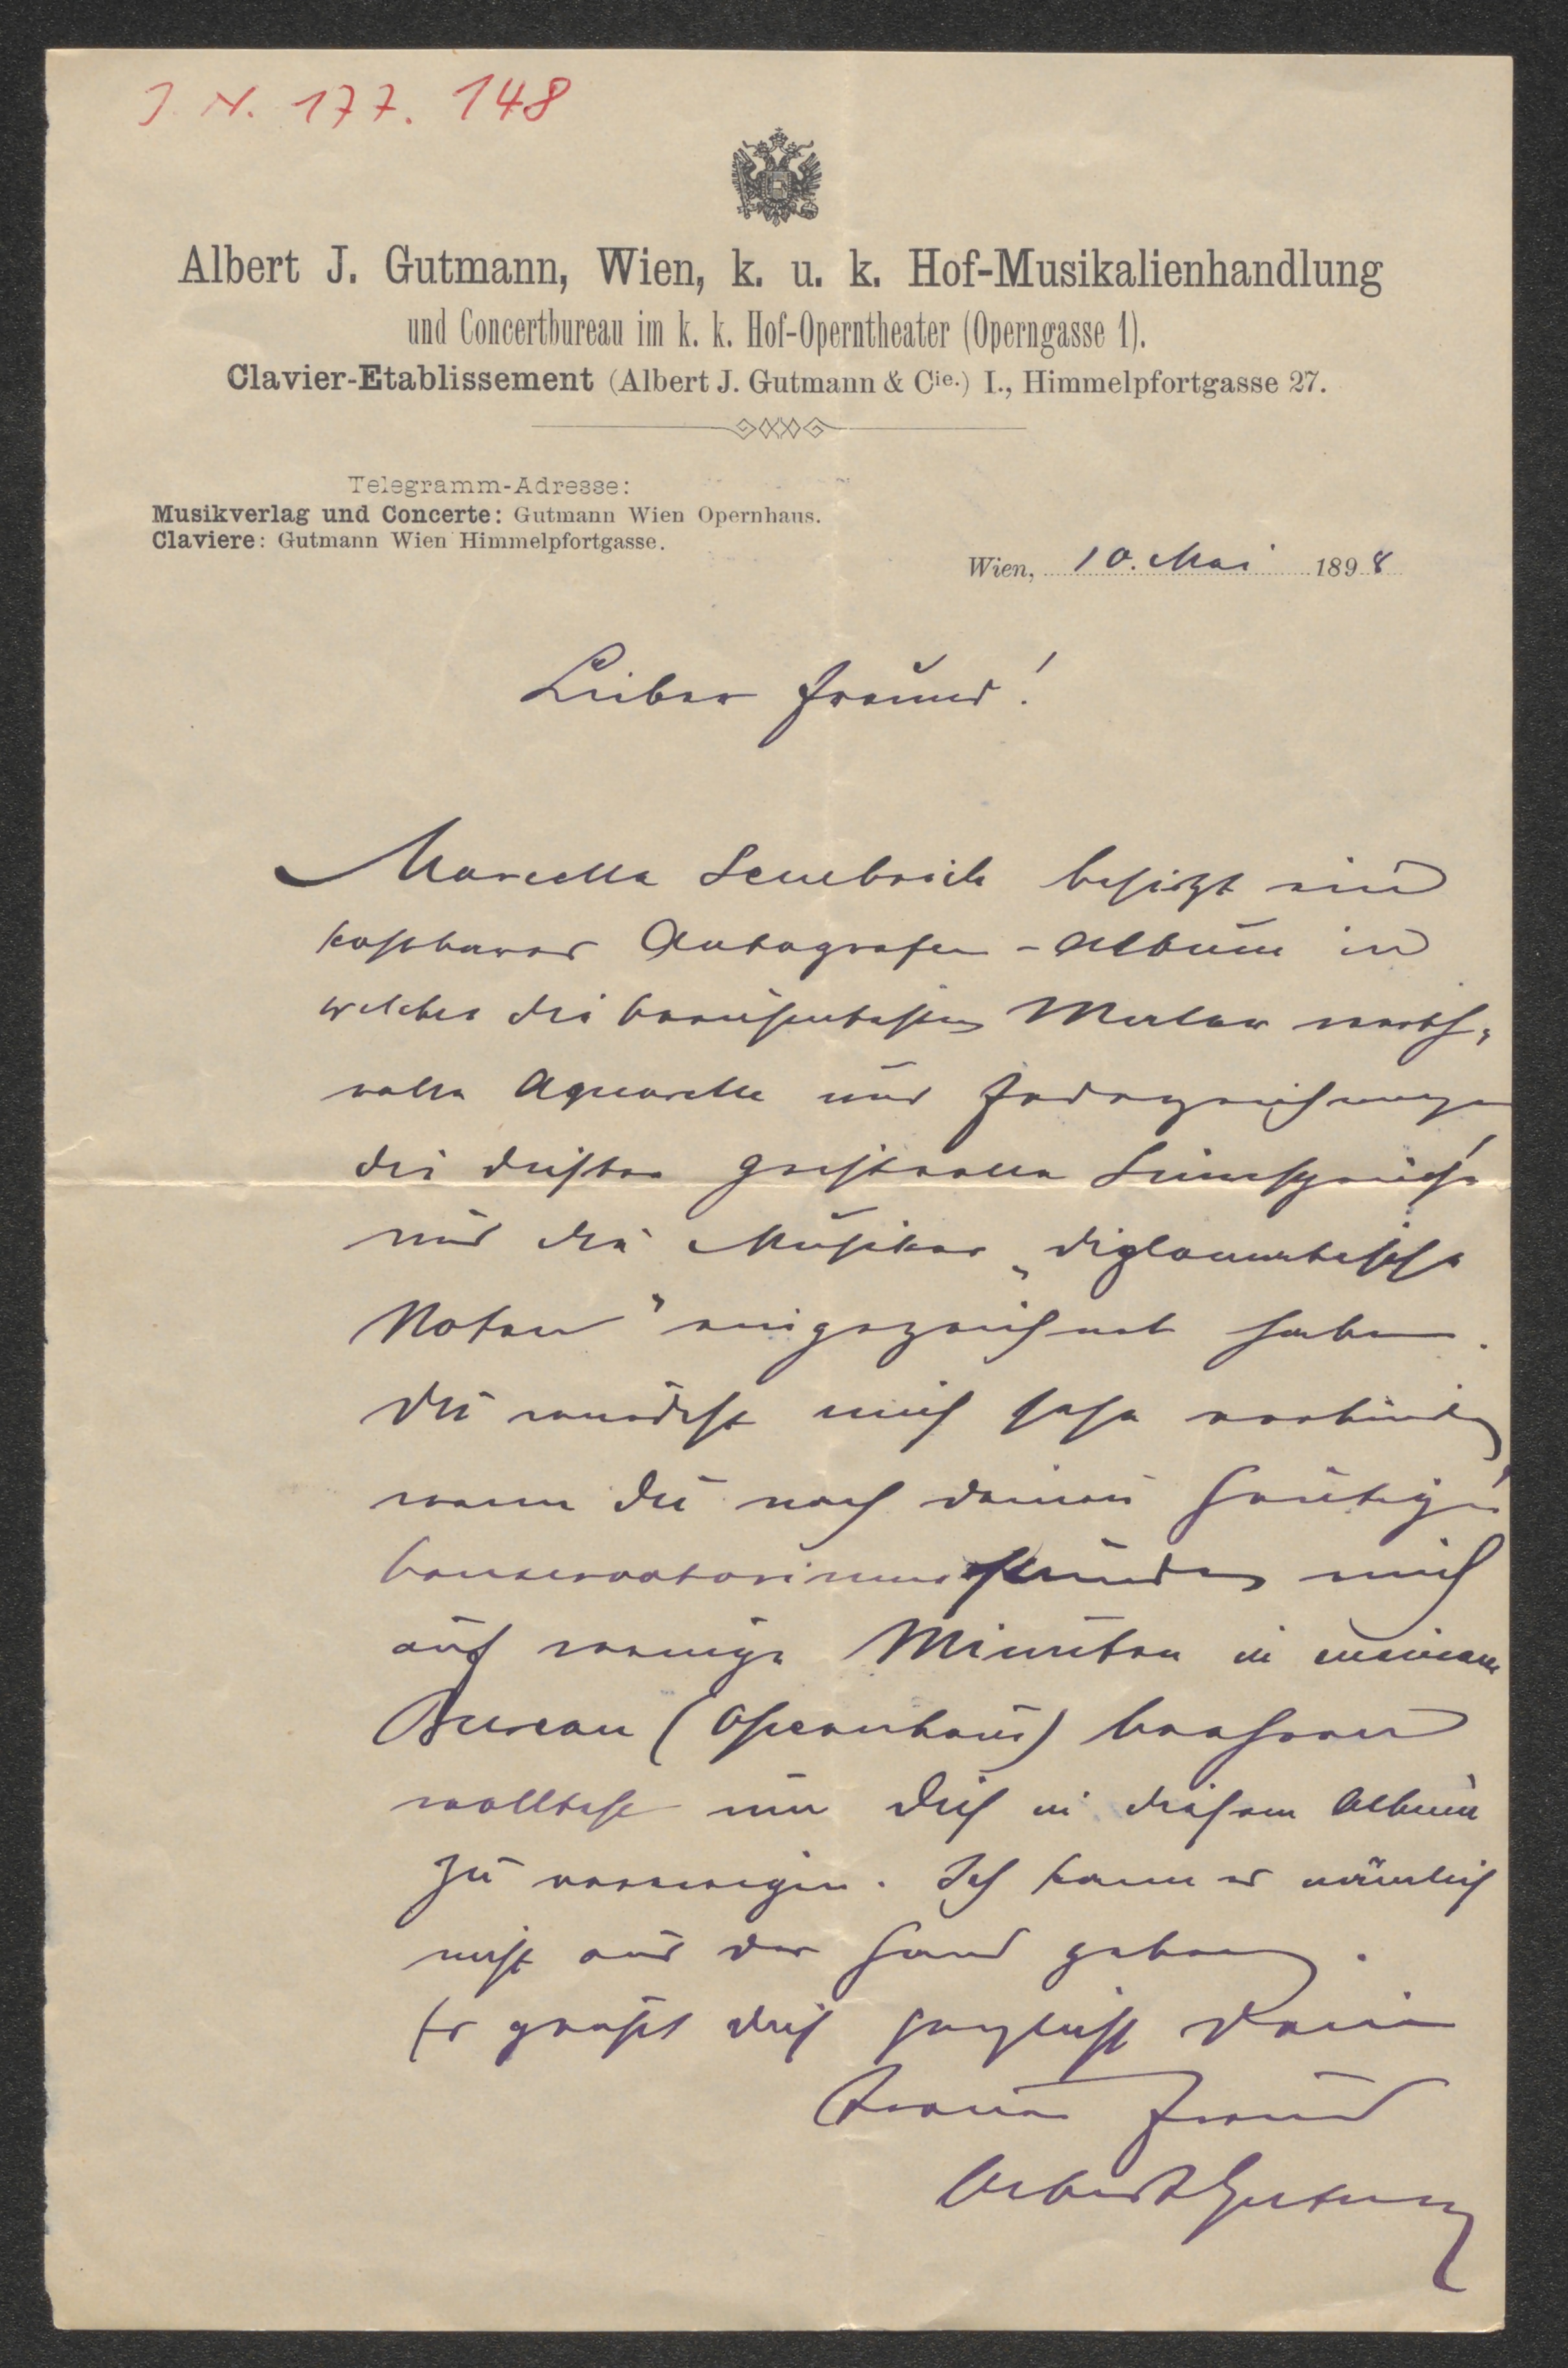 J. N. 177. 148
Albert J. Gutmann, Wien, k. u. k. Hof-Musikalienhandlung
und Concertbureau im k. k. Hof-Operntheater (Operngasse 1).
Clavier-Etablissement (Albert J. Gutmann & Cie.) I., Himmelpfortgasse 27.
Telegramm-Adresse:
Musikverlag und Concerte: Gutmann Wien Opernhaus.
Claviere: Gutmann Wien Himmelpfortgasse.
Wien, 10. Mai 1898
Lieber Freund!
Marcella Sembrich besitzt ein
kostbares Autografen-Album in
welches die berühmtesten Maler werth-
volle Aquarelle und Federzeichnungen
die Dichter geistvolle Sinnsprüche
und die Musiker „diplomatische
Noten" eingezeichnet haben.
Du würdest mich sehr verbinden
wenn Du nach deinen heutigen
Conservatoriumsstunden mich
auf wenige Minuten in meinem
Bureau (Opernhaus) beehren
wolltest um Dich in diesem Album
zu verewigen. Ich kann es nämlich
nicht aus der Hand geben.
Es grüßt Dich herzlichst Dein
treuer Freund
Albert Gutmann